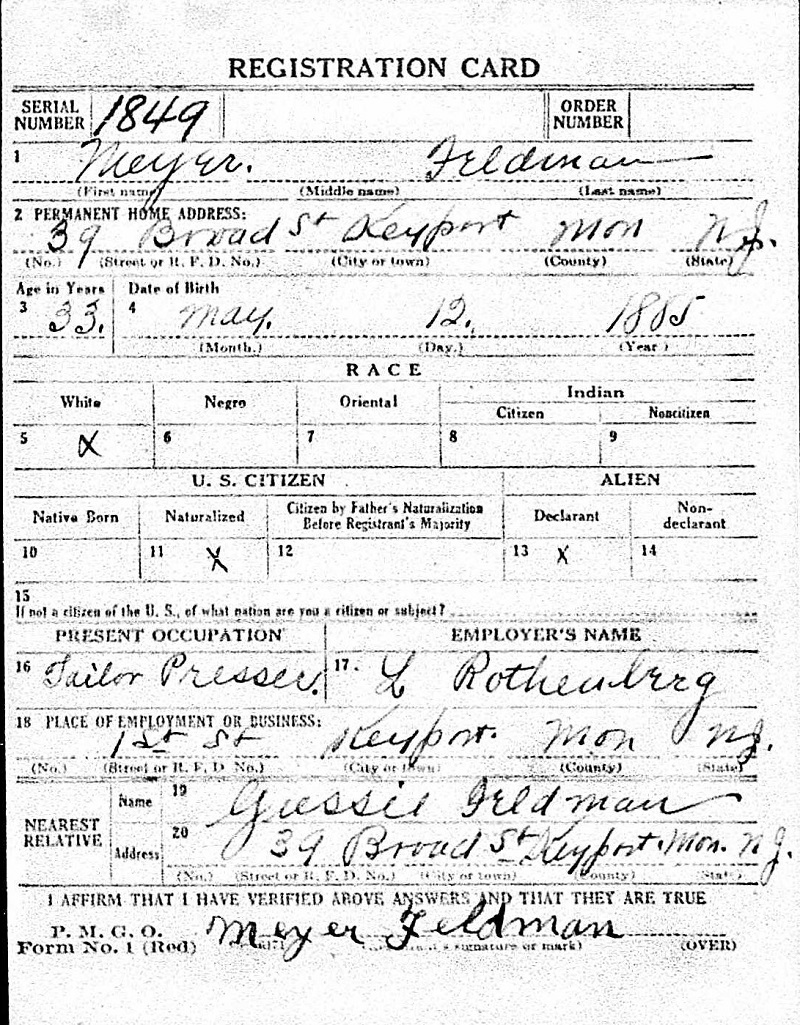 REGISTRATION CARD
SERIAL NUMBER 1849 ORDER NUMBER
1 Meyer. Feldman
(First name) (Middle name) (Last name)
2 PERMANENT HOME ADDRESS:
39 Broad St Keyport Mon N.J.
(No.) (Street or R. F. D. No.) (City or town) (County) (State)
Age in Years Date of Birth
3 33. 4 May. 12. 1885
(Month.) (Day.) (Year)
RACE
White Negro Oriental Indian
Citizen Noncitizen
5 X 6 7 8 9
U. S. CITIZEN ALIEN
Native Born Naturalized Citizen by Father's Naturalization Before Registrant's Majority Declarant Non-declarant
10 11 X 12 13 X 14
15
If not a citizen of the U. S., of what nation are you a citizen or subject?
PRESENT OCCUPATION EMPLOYER'S NAME
16 Tailor Presser. 17. L Rothenberg
18 PLACE OF EMPLOYMENT OR BUSINESS:
1st St Keyport. Mon N.J.
(No.) (Street or R. F. D. No.) (City or town) (County) (State)
NEAREST RELATIVE
Name 19 Gussie Feldman
Address 20 39 Broad St Keyport. Mon. N J.
(No.) (Street or R. F. D. No.) (City or town) (County) (State)
I AFFIRM THAT I HAVE VERIFIED ABOVE ANSWERS AND THAT THEY ARE TRUE
P. M. G. O.
Form No. 1 (Red) Meyer Feldman signature or mark) (OVER)